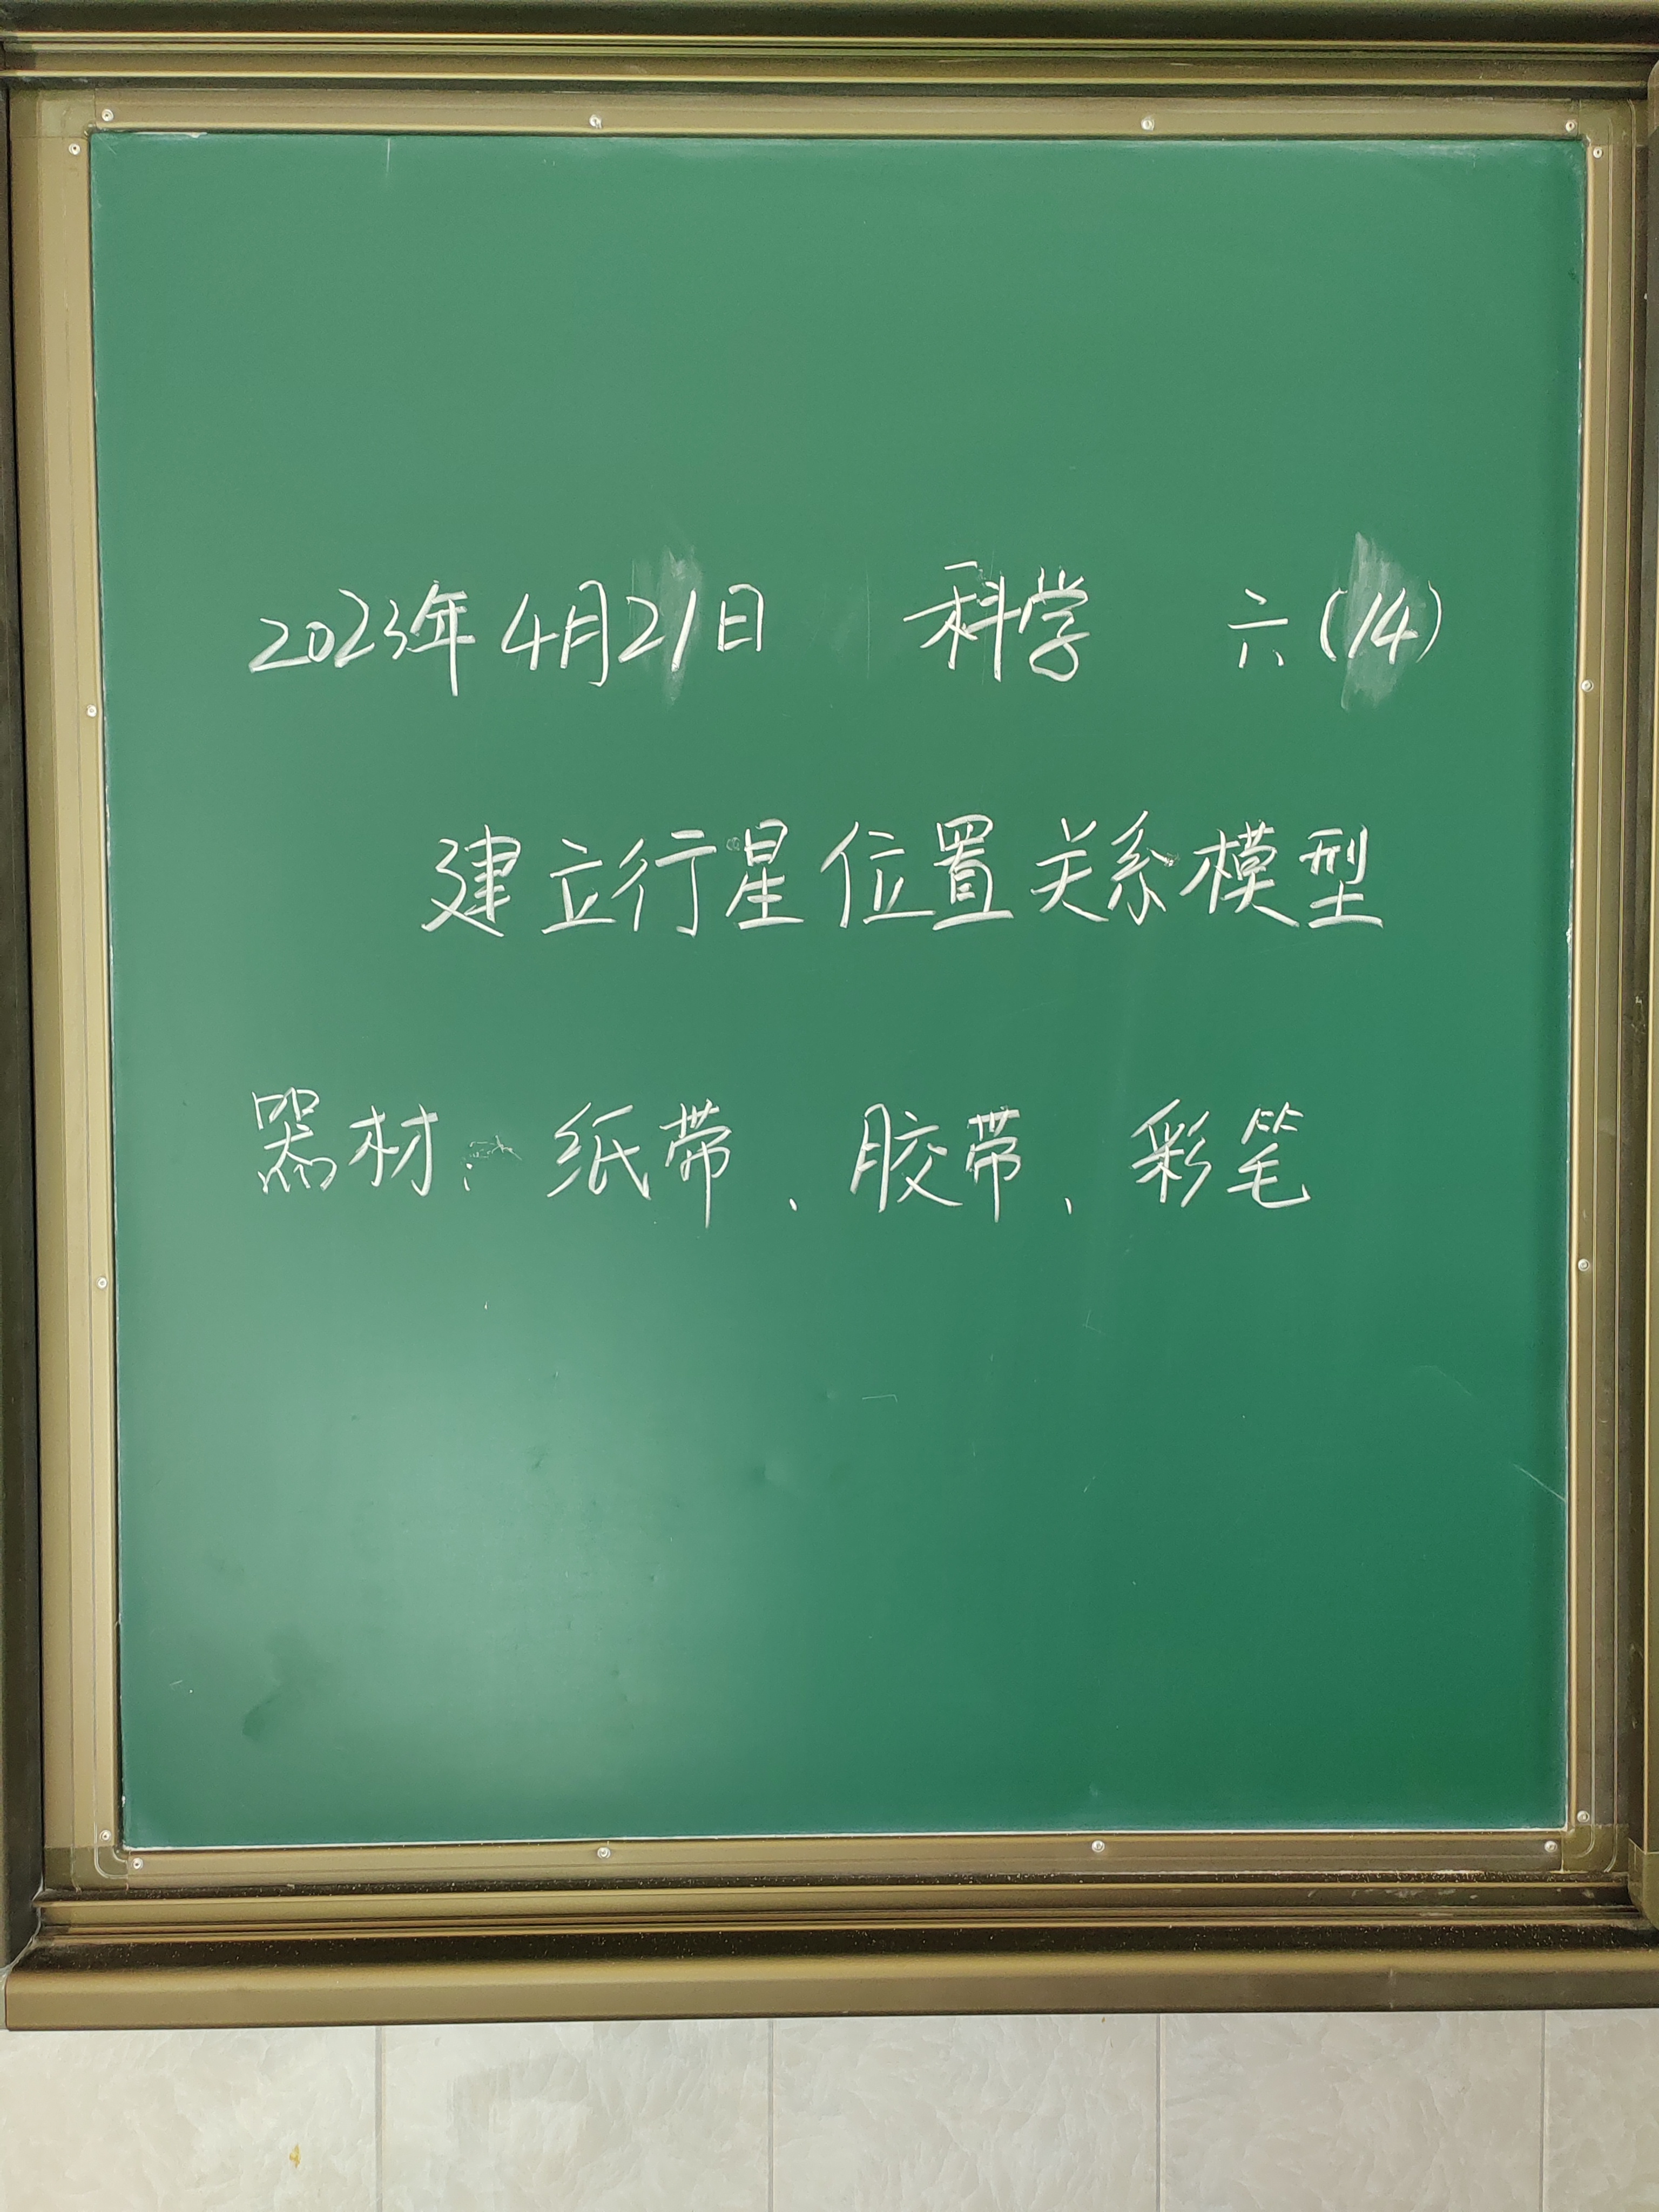 2023年4月21日 科学 六(14)
建立行星位置关系模型
器材：纸带、胶带、彩笔